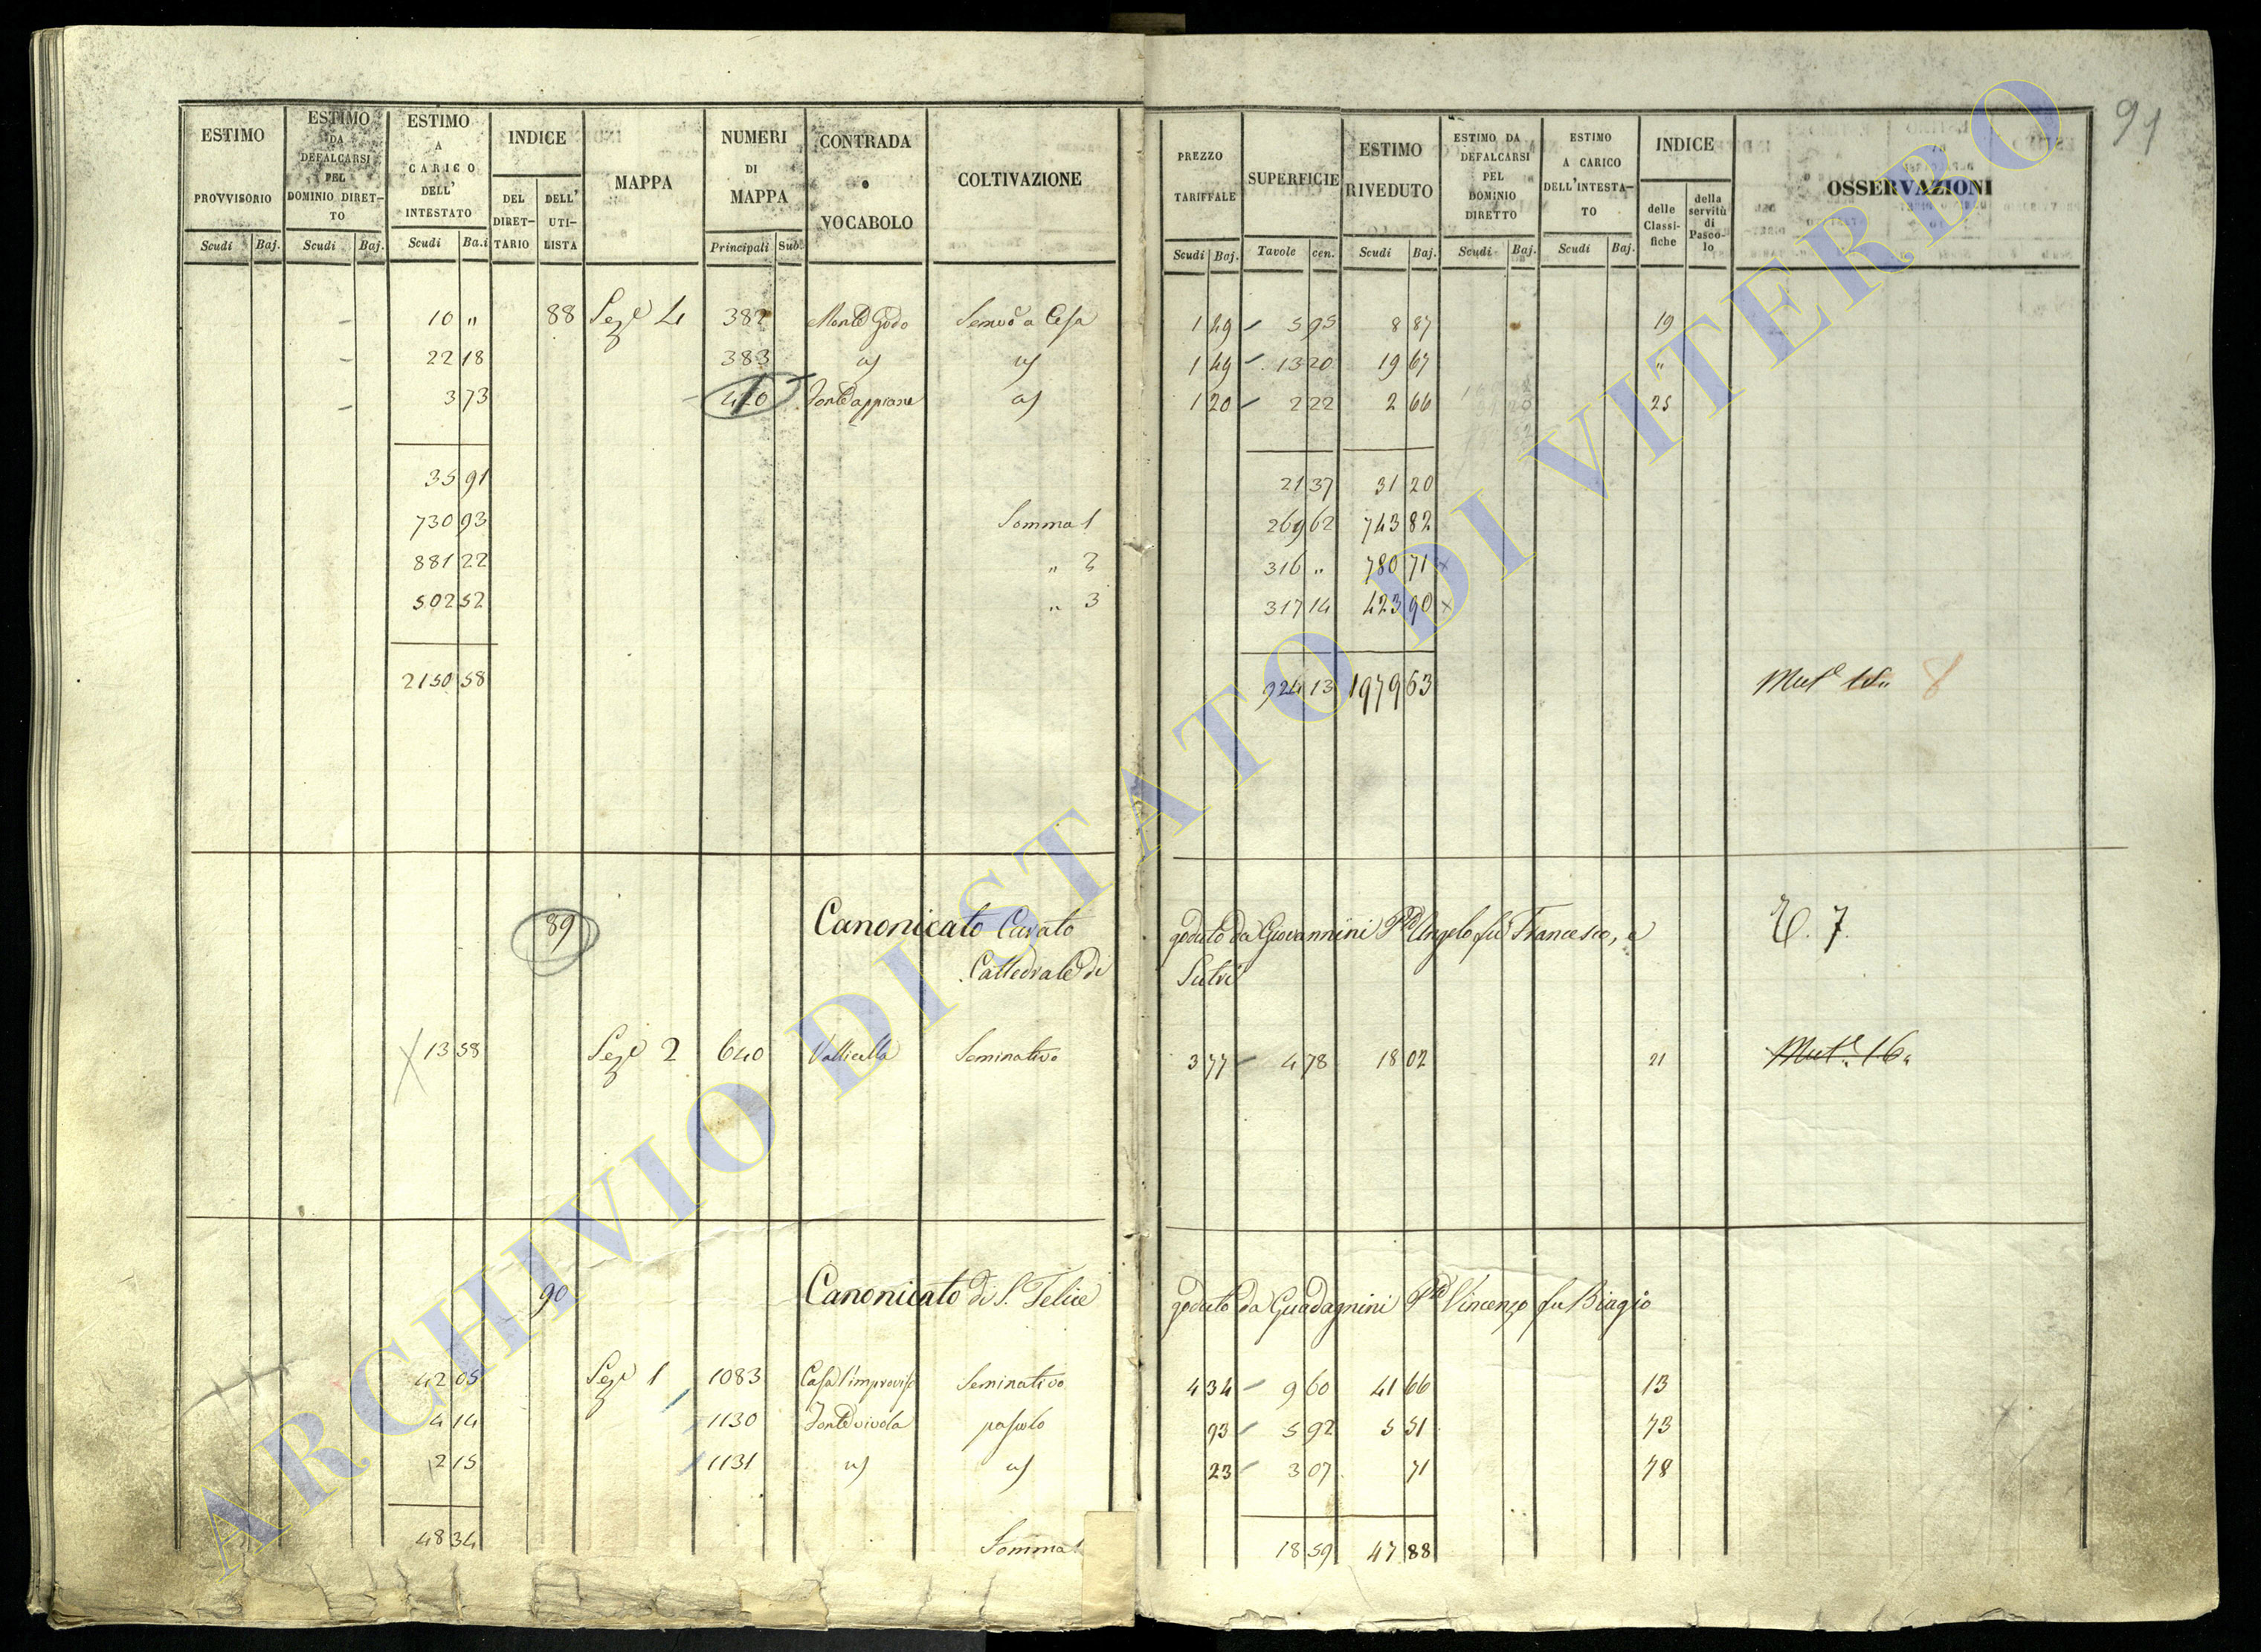 91
ESTIMO PROVVISORIO | ESTIMO DA DEFALCARSI PEL DOMINIO DIRETTO | ESTIMO A CARICO DELL' INTESTATO | INDICE DEL DIRETTARIO | DELL' UTILISTA | MAPPA | NUMERI DI MAPPA | CONTRADA o VOCABOLO | COLTIVAZIONE | PREZZO TARIFFALE | SUPERFICIE | ESTIMO RIVEDUTO | ESTIMO DA DEFALCARSI PEL DOMINIO DIRETTO | ESTIMO A CARICO DELL'INTESTATO | INDICE delle Classifiche | della servitù di Pascolo | OSSERVAZIONI
Scudi | Baj. | Scudi | Baj. | Scudi | Ba.i | Principali | Sub. | Scudi | Baj. | Tavole | cen. | Scudi | Baj. | Scudi | Baj. | Scudi | Baj.
10 " 88 Seze 4 382 Monte Godo Semvo a Cesa 1 49 5 95 8 87 19
22 18 383 id id 1 49 13 20 19 67 "
3 73 420 id 1 20 2 22 2 66 25
35 91 21 37 31 20
730 93 Somma 1 269 62 743 82
881 22 " 2 316 " 780 71 x
502 52 " 3 317 14 423 90 x
2150 58 924 13 1979 63 Mute 8
89 Canonicato Curato goduto da Giovannini Pre Angelo fu Francesco, e E. 7.
Cattedrale di Sutri
13 58 Seze 2 640 Vallicella Seminativo 3 77 4 78 18 02 21 Mute 16"
90 Canonicato di S. Felice goduto da Guadagnini Pre Vincenzo fu Biagio
42 05 Seze 1 1083 Seminativo 4 34 9 60 41 66 13
4 14 1130 Fonte vivola pascolo 93 5 92 5 51 73
2 15 1131 id id 23 3 07 71 78
48 34 Somma 18 59 47 88
ARCHIVIO DI STATO DI VITERBO